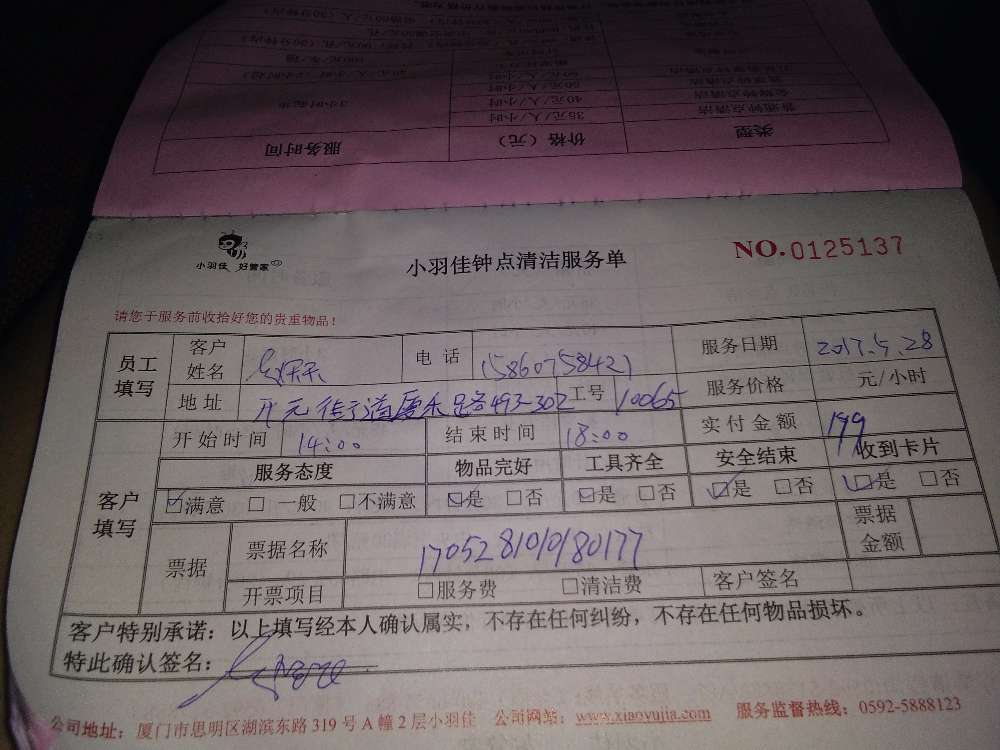 类型 价格（元） 服务时间
普通钟点清洁 35元/人/小时 3小时起步
40元/人/小时
60元/人/小时
小羽佳 好管家
小羽佳钟点清洁服务单
NO.0125137
请您于服务前收拾好您的贵重物品！
员工填写 客户姓名 电话 15860758421 服务日期 2017.5.28
地址 开元街道厦禾路493-302 工号 10065 服务价格 元/小时
客户填写 开始时间 14:00 结束时间 18:00 实付金额 199
服务态度 物品完好 工具齐全 安全结束 收到卡片
☑满意 □一般 □不满意 ☑是 □否 ☑是 □否 ☑是 □否 ☑是 □否
票据 票据名称 17052810180177 票据金额
开票项目 □服务费 □清洁费 客户签名
客户特别承诺：以上填写经本人确认属实，不存在任何纠纷，不存在任何物品损坏。
特此确认签名：
公司地址：厦门市思明区湖滨东路319号A幢2层小羽佳 公司网站：www.xiaoyujia.com 服务监督热线：0592-5888123